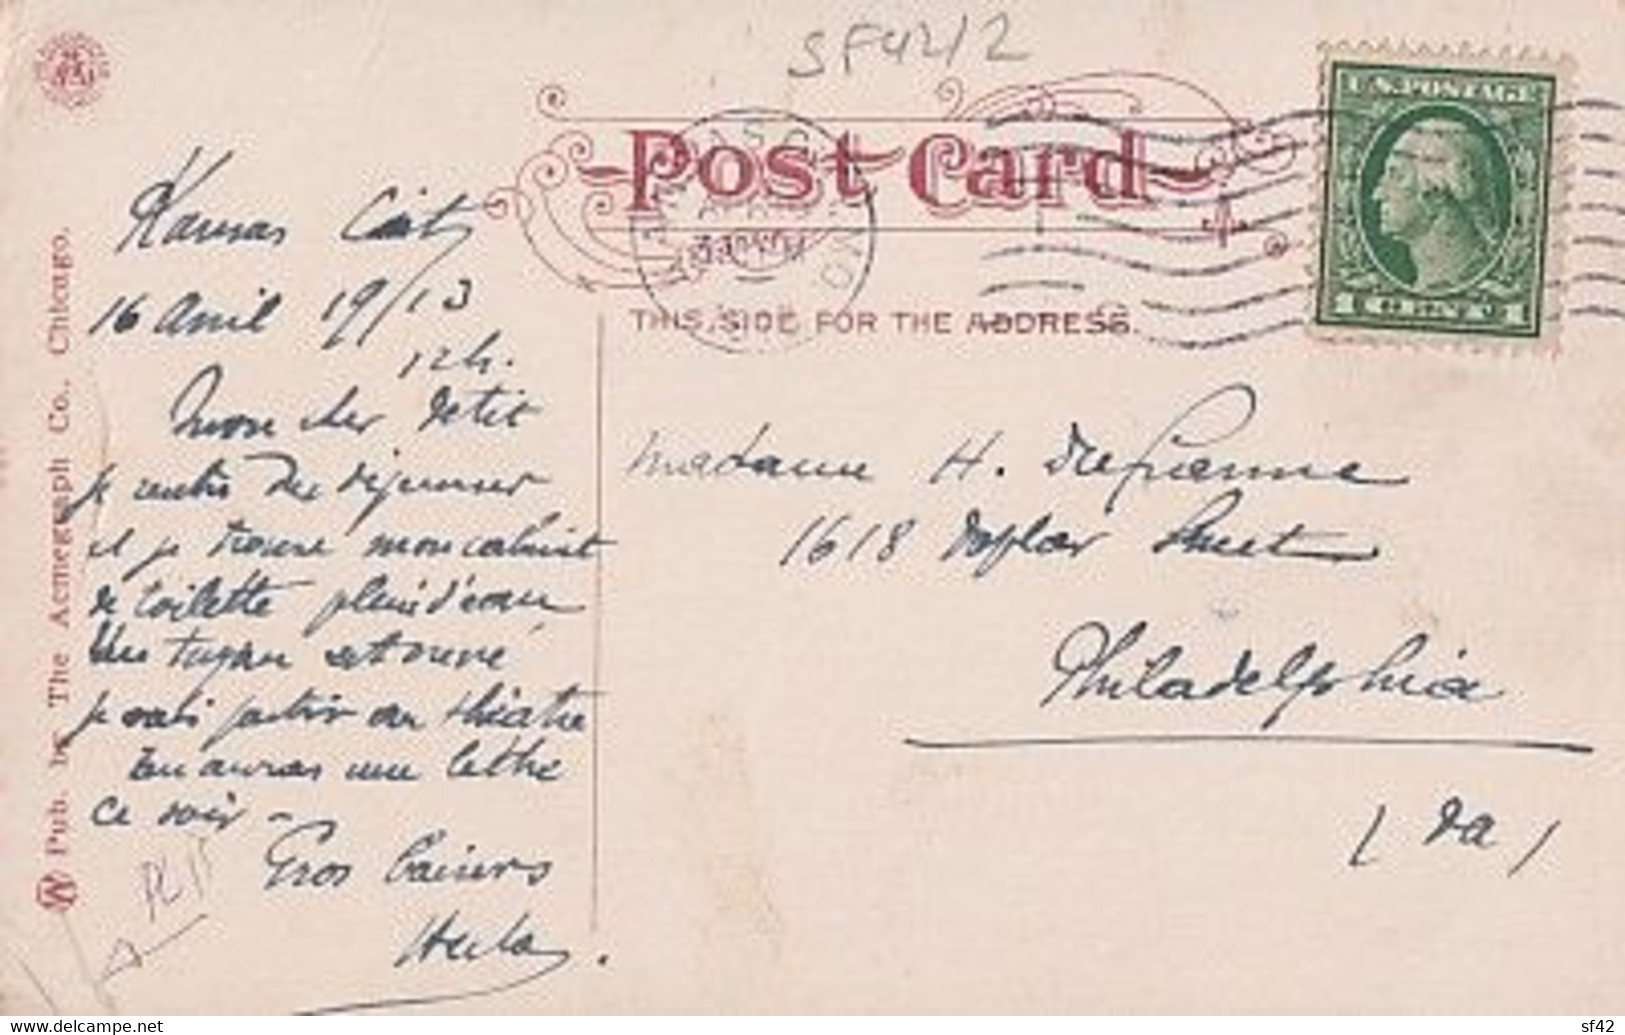 SF42/2
U.S. POSTAGE
Post Card
THIS SIDE FOR THE ADDRESS.
Pub. by The Acmegraph Co., Chicago.
Kansas City
16 Avril 19/13
12h.
Mon cher Petit
je rentre de déjeuner
et je trouve mon cabinet
de toilette plein d'eau
Un tuyau est crevé
je vais partir au théâtre
Tu auras une lettre
ce soir -
Gros baisers
Madame H.
1618 Poplar Street
Philadelphia
(Pa)
delcampe.net
sf42